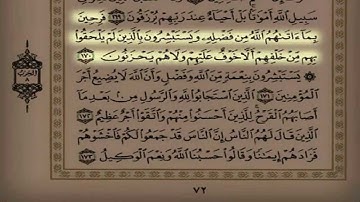 سَبِيلِ اللَّهِ أَمْوَاتًا بَلْ أَحْيَاءٌ عِندَ رَبِّهِمْ يُرْزَقُونَ ١٦٩ فَرِحِينَ
بِمَا آتَاهُمُ اللَّهُ مِن فَضْلِهِ وَيَسْتَبْشِرُونَ بِالَّذِينَ لَمْ يَلْحَقُوا
بِهِم مِّنْ خَلْفِهِمْ أَلَّا خَوْفٌ عَلَيْهِمْ وَلَا هُمْ يَحْزَنُونَ ١٧٠
يَسْتَبْشِرُونَ بِنِعْمَةٍ مِّنَ اللَّهِ وَفَضْلٍ وَأَنَّ اللَّهَ لَا يُضِيعُ أَجْرَ
الْمُؤْمِنِينَ ١٧١ الَّذِينَ اسْتَجَابُوا لِلَّهِ وَالرَّسُولِ مِن بَعْدِ مَا
أَصَابَهُمُ الْقَرْحُ لِلَّذِينَ أَحْسَنُوا مِنْهُمْ وَاتَّقَوْا أَجْرٌ عَظِيمٌ ١٧٢
الَّذِينَ قَالَ لَهُمُ النَّاسُ إِنَّ النَّاسَ قَدْ جَمَعُوا لَكُمْ فَاخْشَوْهُمْ
فَزَادَهُمْ إِيمَانًا وَقَالُوا حَسْبُنَا اللَّهُ وَنِعْمَ الْوَكِيلُ ١٧٣
٧٢